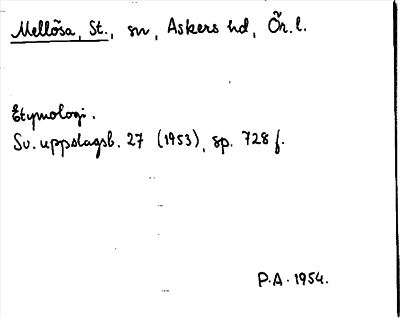 Mellösa, St., sn, Askers hd, Ör. l.
Etymologi.
Sv. uppslagsb. 27 (1953), sp. 728 f.
P.A. 1954.